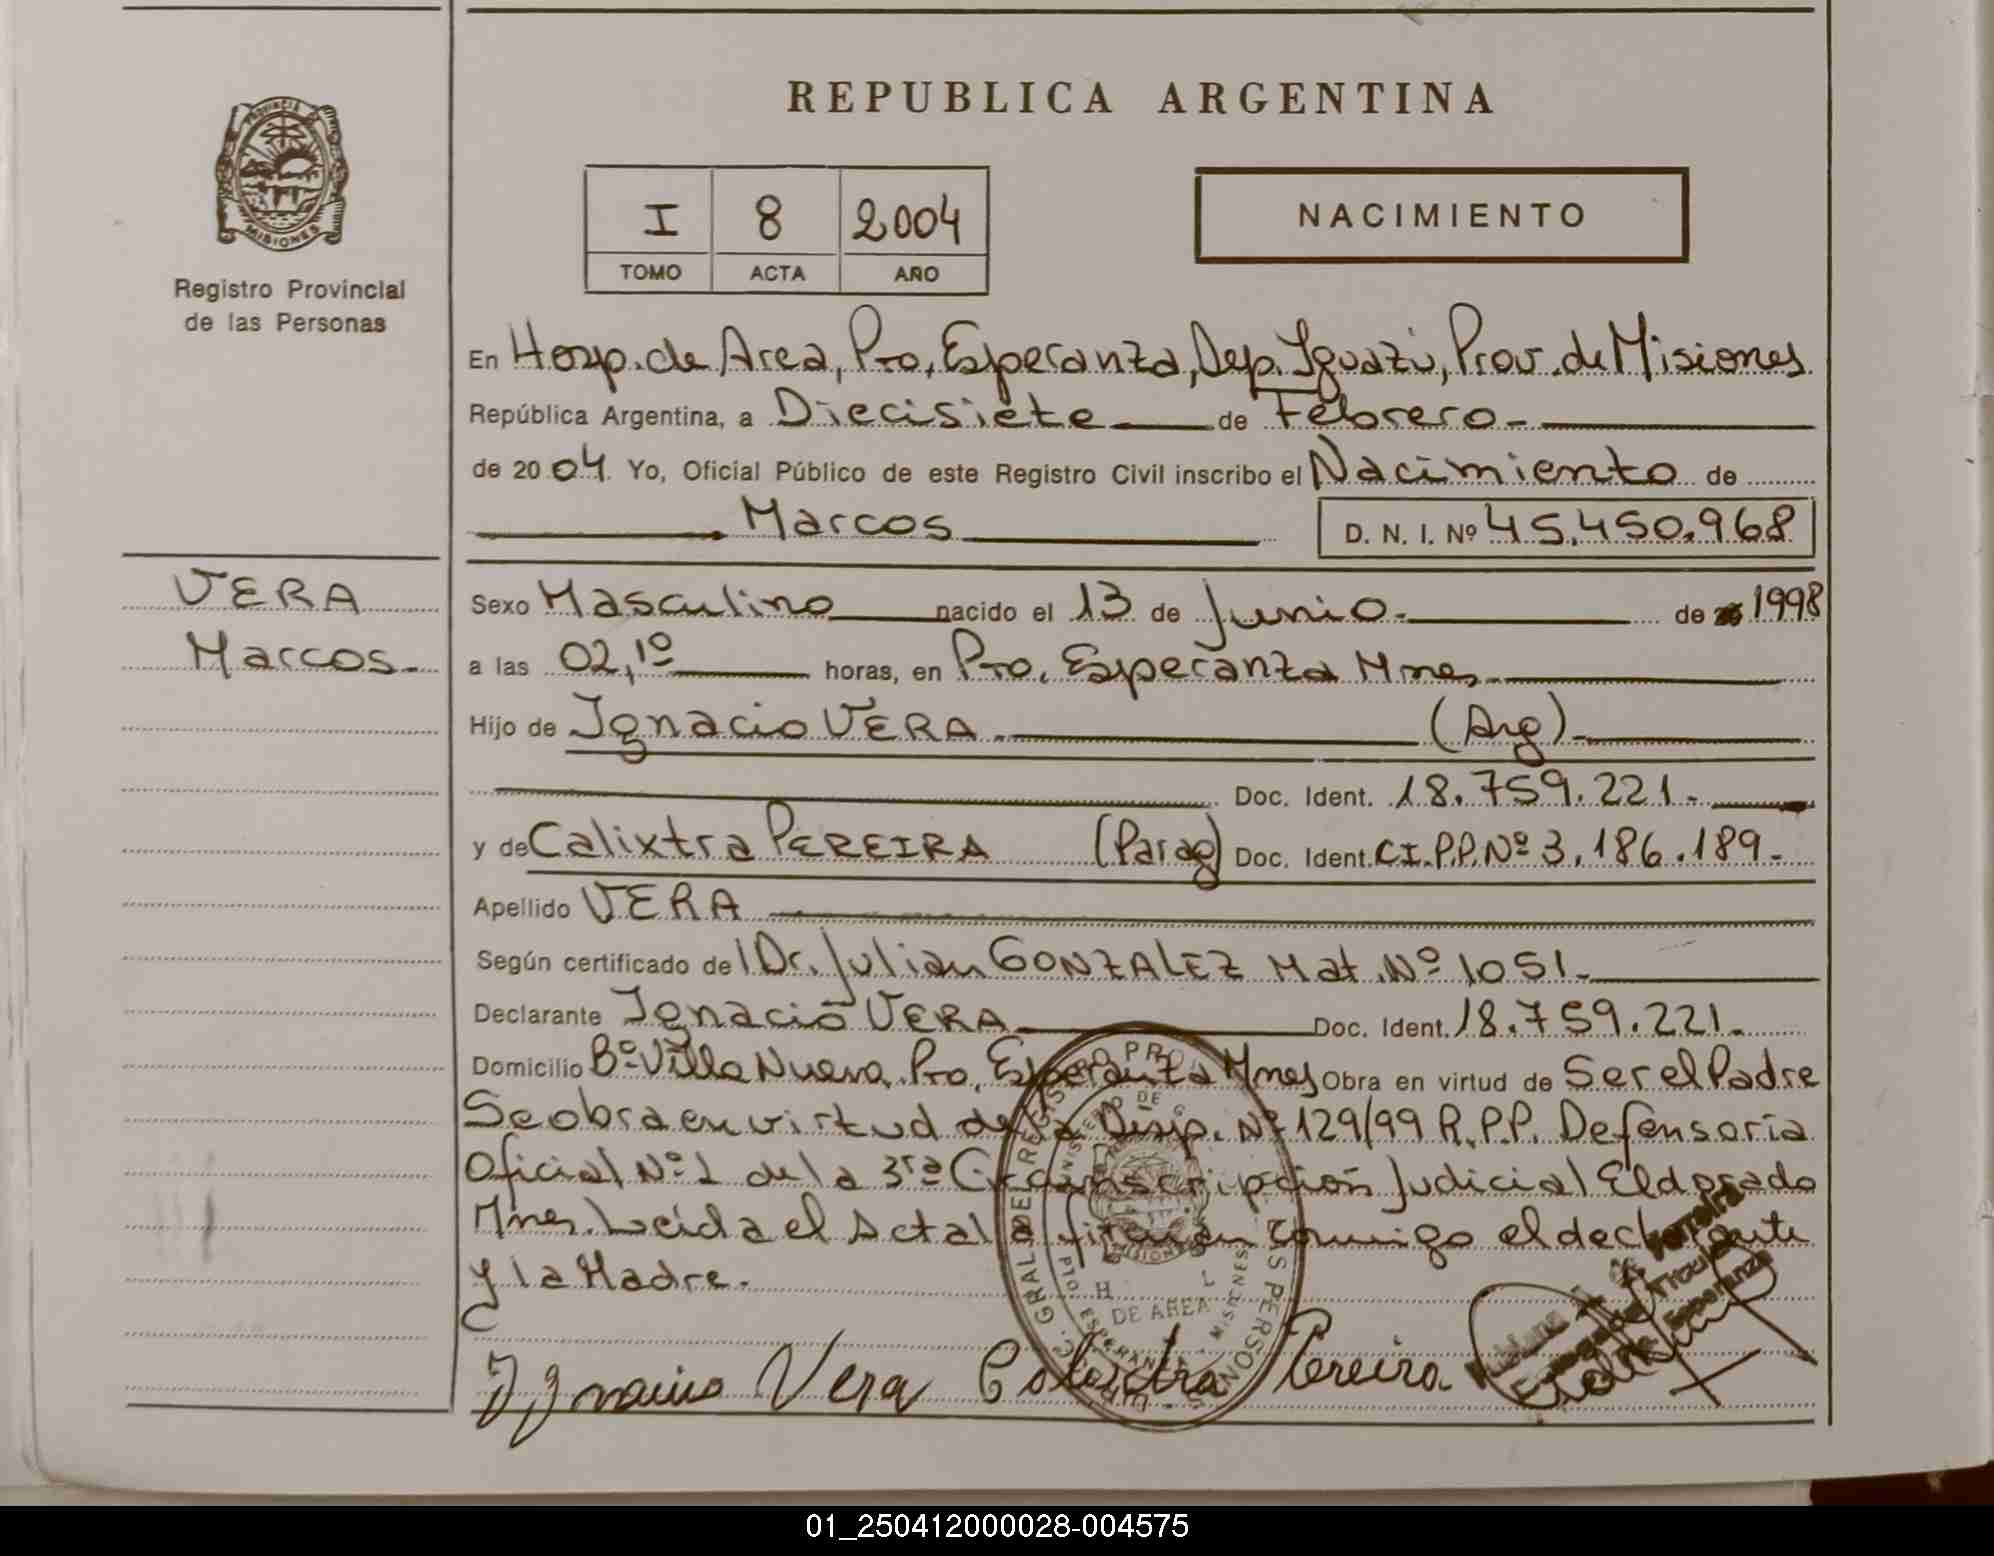 REPUBLICA ARGENTINA
PROVINCIA
MISIONES
Registro Provincial
de las Personas
I 8 2004
TOMO ACTA AÑO
NACIMIENTO
En Hosp. de Area, Pto. Esperanza, Dep. Iguazú, Prov. de Misiones
República Argentina, a Diecisiete de Febrero
de 2004. Yo, Oficial Público de este Registro Civil inscribo el Nacimiento de
Marcos D. N. I. Nº 45.450.968
VERA
Marcos
Sexo Masculino nacido el 13 de Junio de 1998
a las 02,10 horas, en Pto. Esperanza Mnes
Hijo de Ignacio VERA (Arg)
Doc. Ident. 18.759.221.
y de Calixtra PEREIRA (Parag) Doc. Ident. C.I.P.P. Nº 3.186.189.
Apellido VERA
Según certificado del Dr. Julian GONZALEZ Mat. Nº 1051.
Declarante Ignacio VERA Doc. Ident. 18.759.221.
Domicilio Bº Villa Nueva, Pto. Esperanza Mnes Obra en virtud de Ser el Padre
Se obra en virtud de la Disp. Nº 129/99 R.P.P. Defensoria
Oficial Nº 1 de la 3ra Circunscripción Judicial Eldorado
Mnes. Leida el Acta la firman conmigo el declarante
y la Madre.
Ignacio Vera Calixtra Pereira
GRAL. DEL REGISTRO PERSONAS
DE AREA
ESPERANZA
MISIONES
01_250412000028-004575